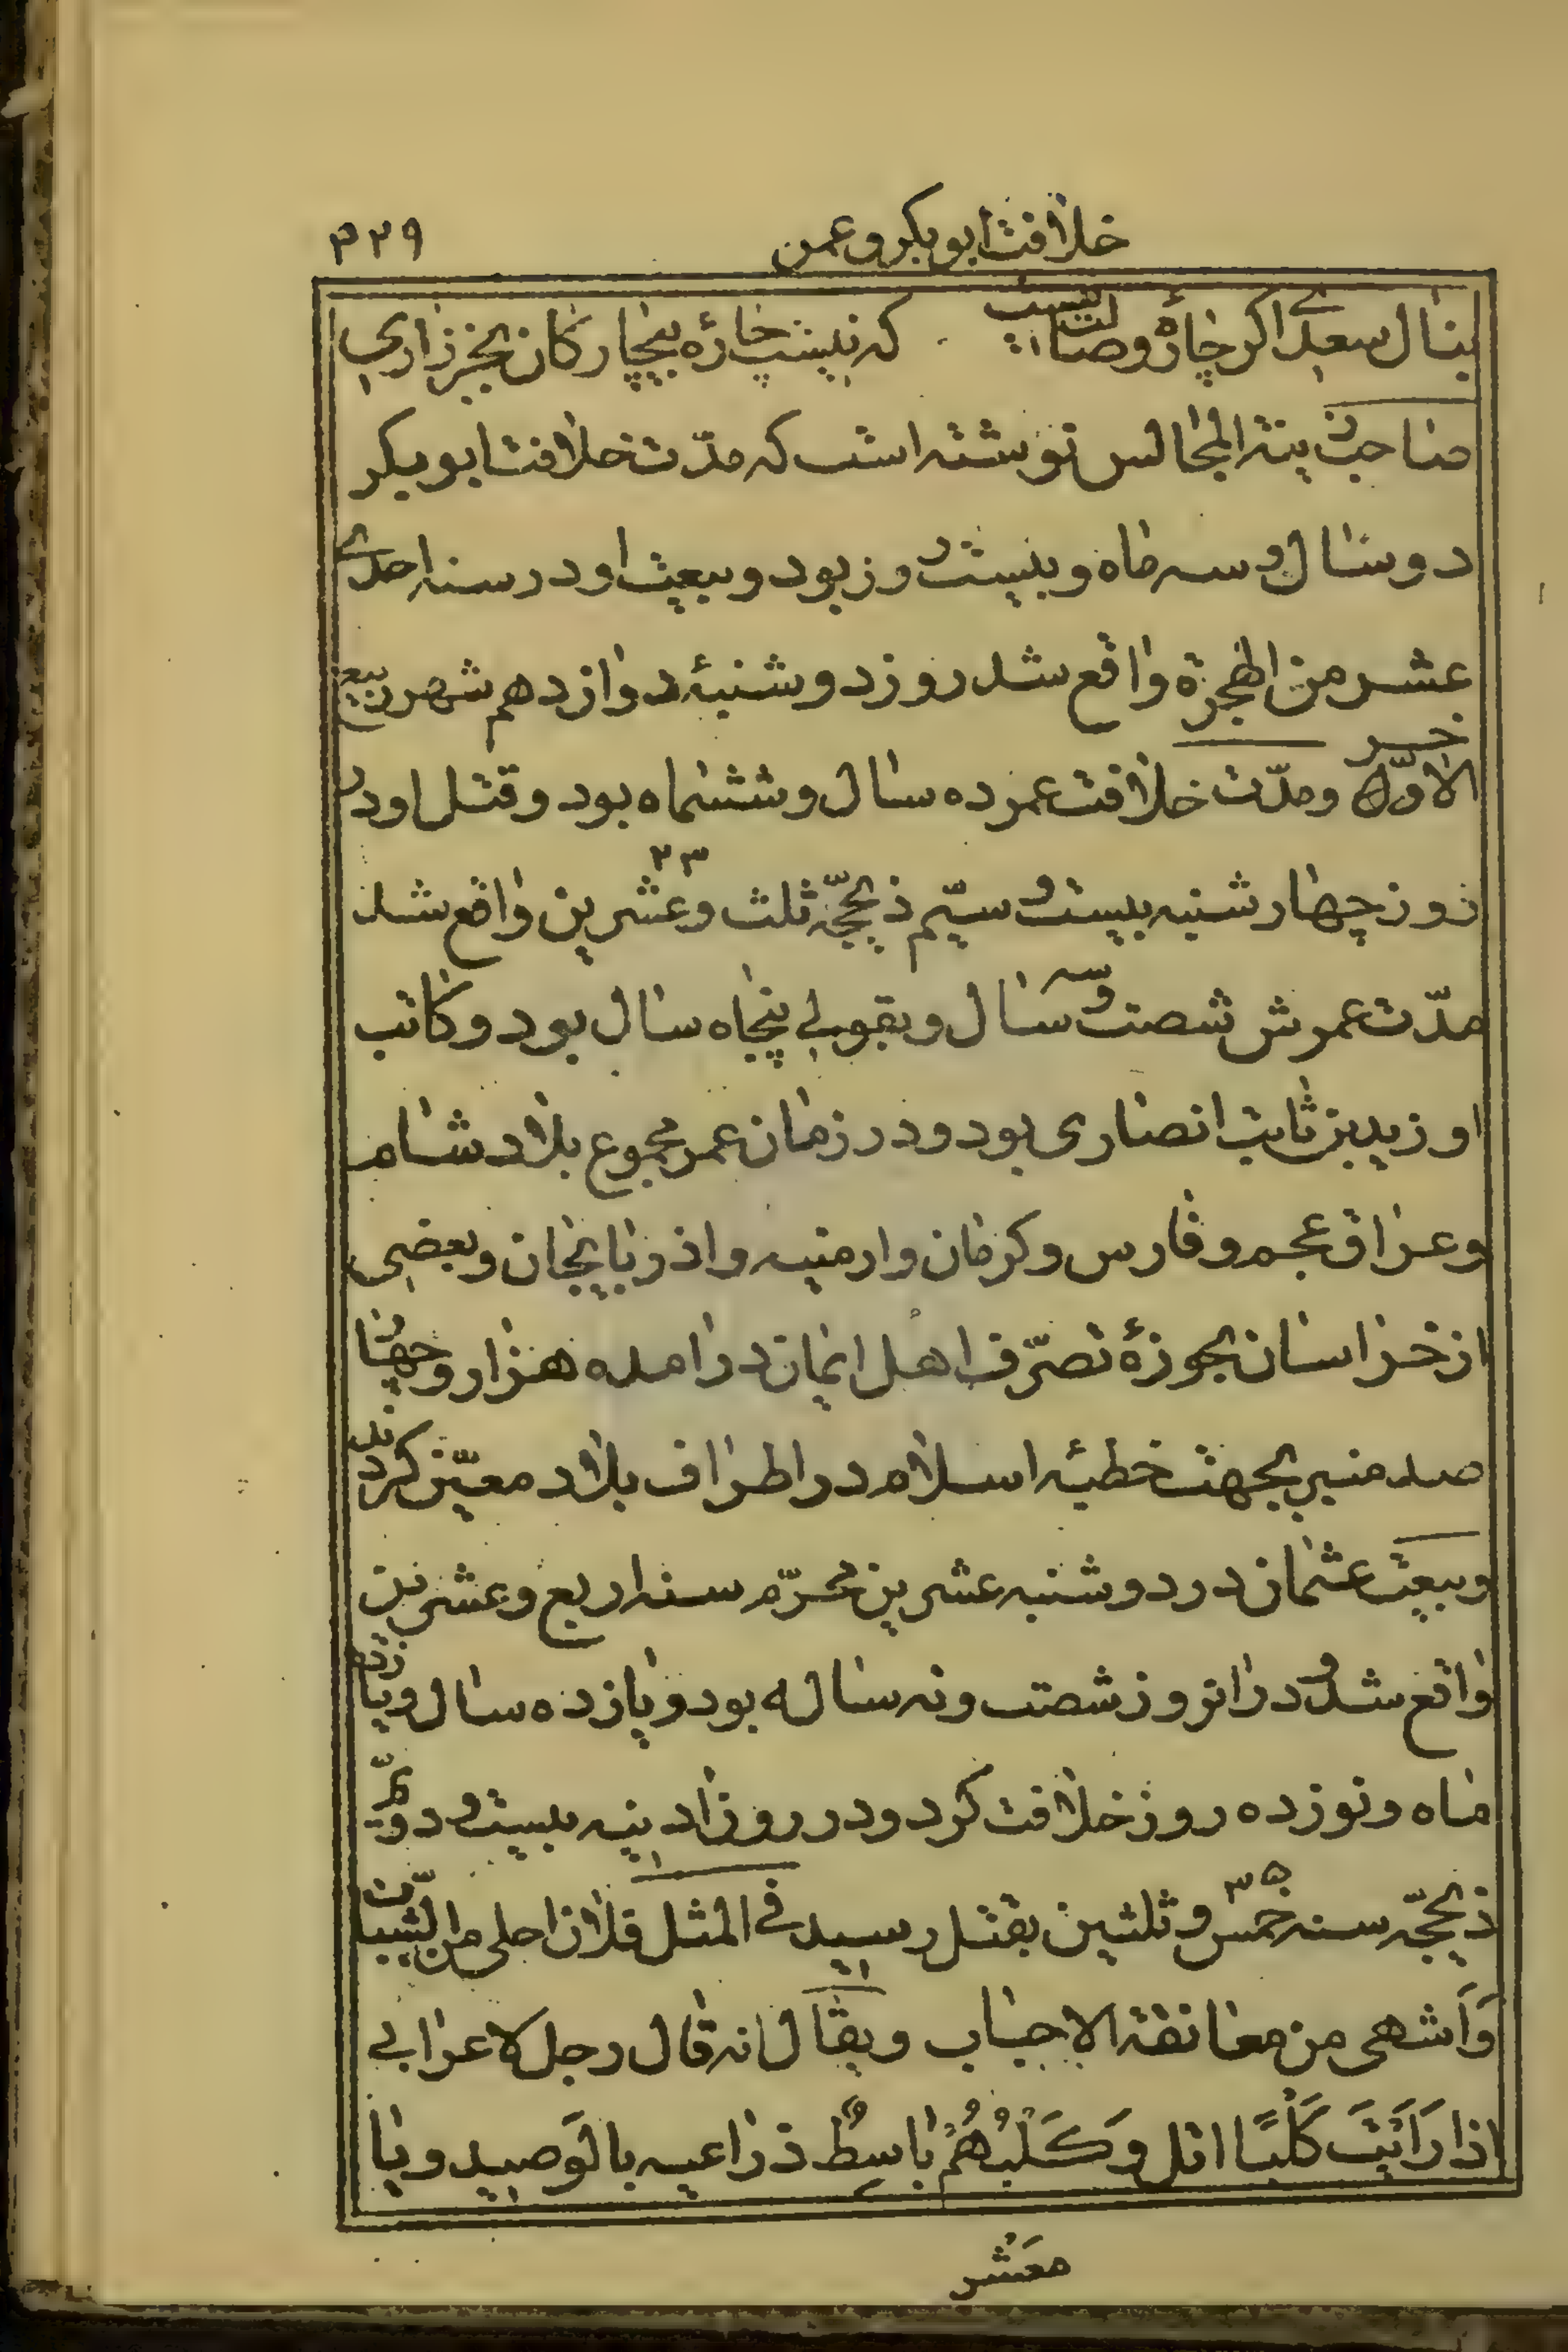 خلافت ابوبکر و عمر
۳۳۹
بنال سعدی اگر چارهٔ وصالت نیست که نیست چارهٔ بیچارگان بجز زاری
صاحب زینة المجالس نوشته است که مدّت خلافت ابوبکر
دو سال و سه ماه و بیست روز بود و بیعت او در سنه احدی
عشر من الهجرة واقع شد روز دوشنبهٔ دوازدهم شهر ربیع
الاوّل و مدّت خلافت عمر ده سال و ششماه بود و قتل او در
روز چهارشنبه بیست و سیّم ذیحجّه ثلث و عشرین ۲۳ واقع شد
مدّت عمرش شصت و سه سال و بقولی پنجاه سال بود و کاتب
او زید بن ثابت انصاری بود و در زمان عمر مجموع بلاد شام
و عراق عجم و فارس و کرمان و ارمنیه و اذربایجان و بعضی
از خراسان بحوزهٔ تصرّف اهل ایمان درامده هزار و چهار
صد منبر بجهت خطبهٔ اسلام در اطراف بلاد معیّن کردند
و بیعت عثمان در دوشنبه عشرین محرّم سنه اربع و عشرین
واقع شد و در انروز شصت و نه ساله بود و یازده سال و یازده
ماه و نوزده روز خلافت کرد و در روز ادینه بیست و دویّم
ذیحجّه سنه خمس و ثلثین ۳۵ بقتل رسید فی المثل فلان احلی من الشّبیبات
وَاَشهی من معانقة الاحباب و یقال انه قال رجل لاعرابی
اذا رَاَیْتَ کَلْبًا اتل وَکَلْبُهُمْ باسِطٌ ذراعیه بالوَصید و یا
معَشر